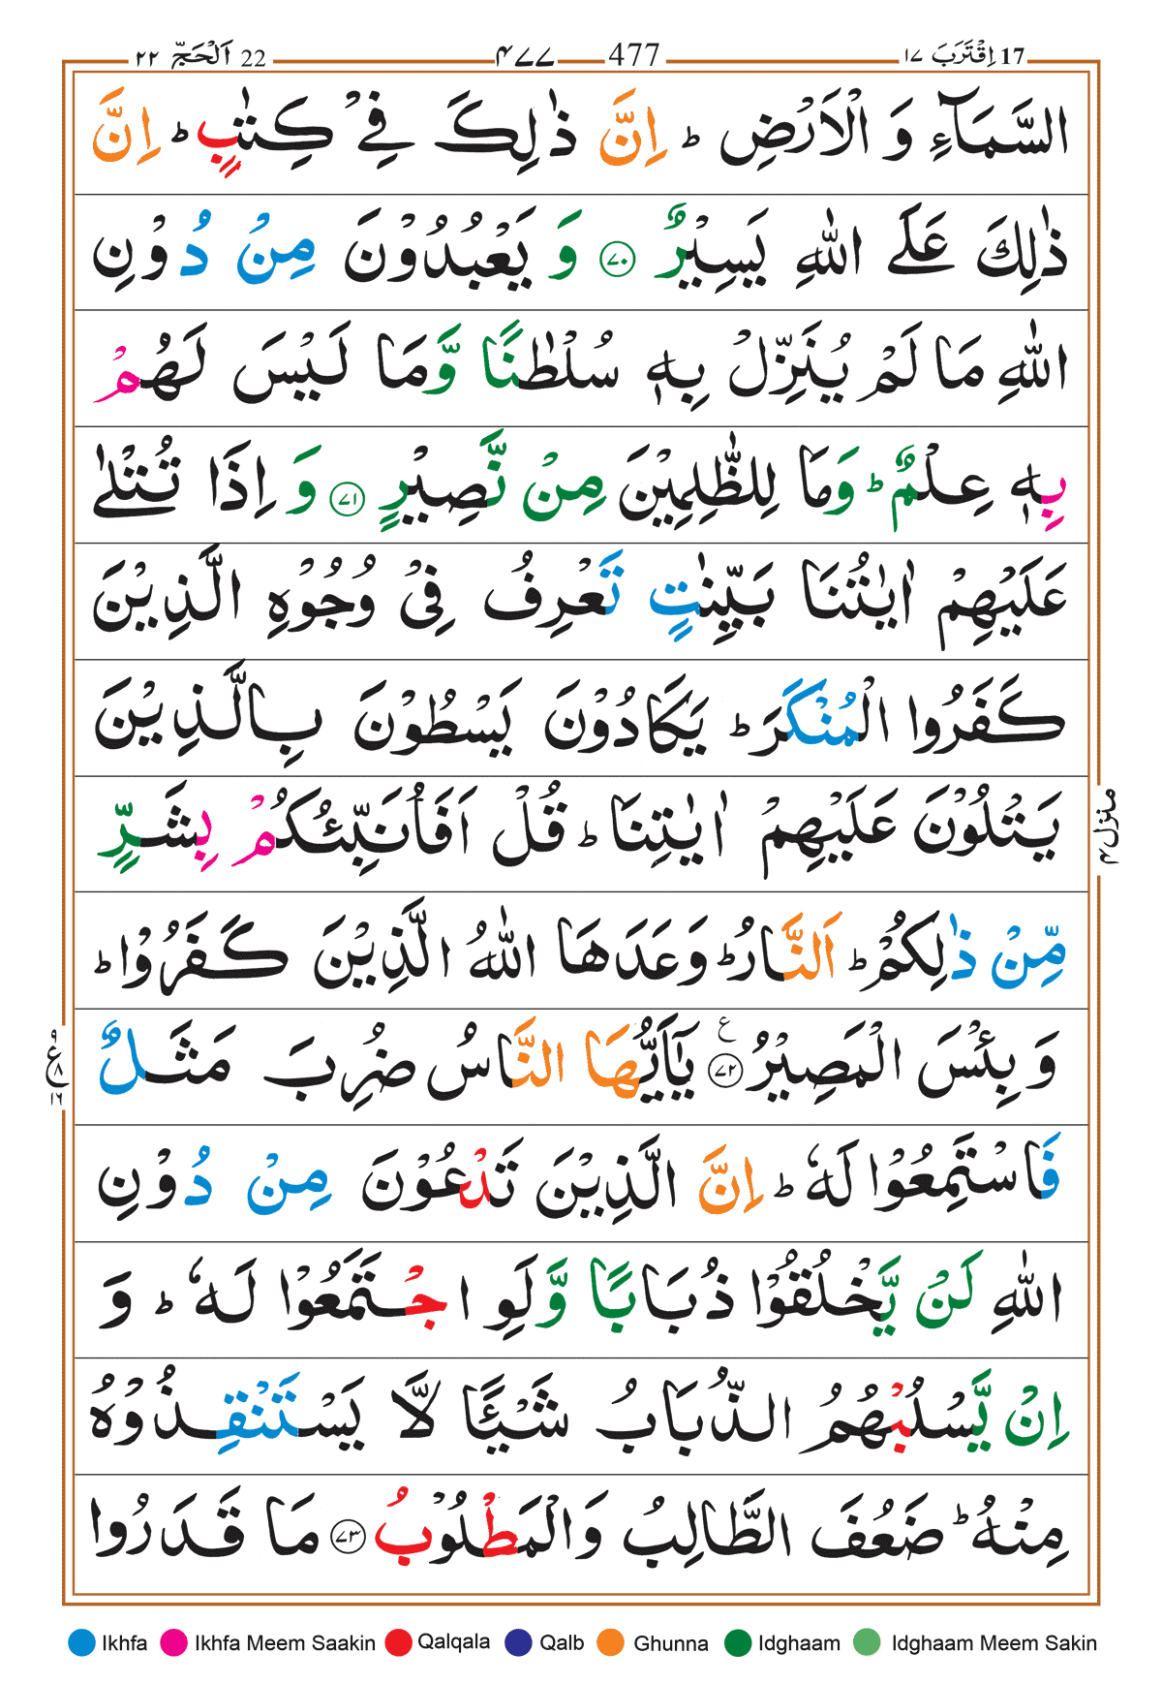 22 اَلْحَجّ ٢٢
477 ٤٧٧
17 اِقْتَرَبَ ١٧
السَّمَآءِ وَ الْاَرْضِ ؕ اِنَّ ذٰلِكَ فِیْ كِتٰبٍ ؕ اِنَّ
ذٰلِكَ عَلَی اللّٰهِ یَسِیْرٌ ﴿٧٠﴾ وَ یَعْبُدُوْنَ مِنْ دُوْنِ
اللّٰهِ مَا لَمْ یُنَزِّلْ بِهٖ سُلْطٰنًا وَّمَا لَیْسَ لَهُمْ
بِهٖ عِلْمٌ ؕ وَمَا لِلظّٰلِمِیْنَ مِنْ نَّصِیْرٍ ﴿٧١﴾ وَ اِذَا تُتْلٰی
عَلَیْهِمْ اٰیٰتُنَا بَیِّنٰتٍ تَعْرِفُ فِیْ وُجُوْهِ الَّذِیْنَ
كَفَرُوا الْمُنْكَرَ ؕ یَكَادُوْنَ یَسْطُوْنَ بِالَّذِیْنَ
یَتْلُوْنَ عَلَیْهِمْ اٰیٰتِنَا ؕ قُلْ اَفَاُنَبِّئُكُمْ بِشَرٍّ
مِّنْ ذٰلِكُمْ ؕ اَلنَّارُ ؕ وَعَدَهَا اللّٰهُ الَّذِیْنَ كَفَرُوْا ؕ
وَ بِئْسَ الْمَصِیْرُ ﴿٧٢﴾ ع یٰۤاَیُّهَا النَّاسُ ضُرِبَ مَثَلٌ
فَاسْتَمِعُوْا لَهٗ ؕ اِنَّ الَّذِیْنَ تَدْعُوْنَ مِنْ دُوْنِ
اللّٰهِ لَنْ یَّخْلُقُوْا ذُبَابًا وَّلَوِ اجْتَمَعُوْا لَهٗ ؕ وَ
اِنْ یَّسْلُبْهُمُ الذُّبَابُ شَیْـًٔا لَّا یَسْتَنْقِذُوْهُ
مِنْهُ ؕ ضَعُفَ الطَّالِبُ وَالْمَطْلُوْبُ ﴿٧٣﴾ مَا قَدَرُوا
منزل ٤
ع ٨ ١٦
Ikhfa Ikhfa Meem Saakin Qalqala Qalb Ghunna Idghaam Idghaam Meem Sakin